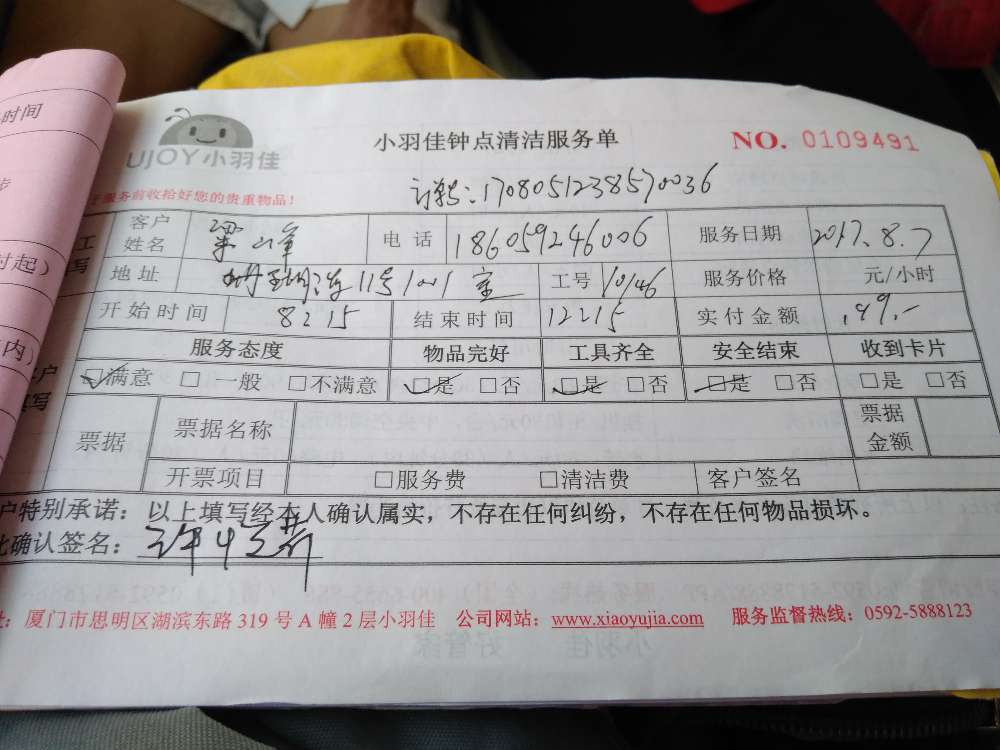 时间
UJOY小羽佳
小羽佳钟点清洁服务单
NO. 0109491
服务前收拾好您的贵重物品!
订单:1708051238570036
客户姓名 梁山峯 电话 186059246006 服务日期 2017.8.7
地址 11号1001室 工号 10146 服务价格 元/小时
开始时间 8:15 结束时间 12:15 实付金额 149.-
服务态度 物品完好 工具齐全 安全结束 收到卡片
☑满意 □一般 □不满意 ☑是 □否 ☑是 □否 ☑是 □否 □是 □否
票据 票据名称 票据金额
开票项目 □服务费 □清洁费 客户签名
户特别承诺:以上填写经本人确认属实,不存在任何纠纷,不存在任何物品损坏。
此确认签名:
厦门市思明区湖滨东路 319 号 A 幢 2 层小羽佳 公司网站:www.xiaoyujia.com 服务监督热线:0592-5888123